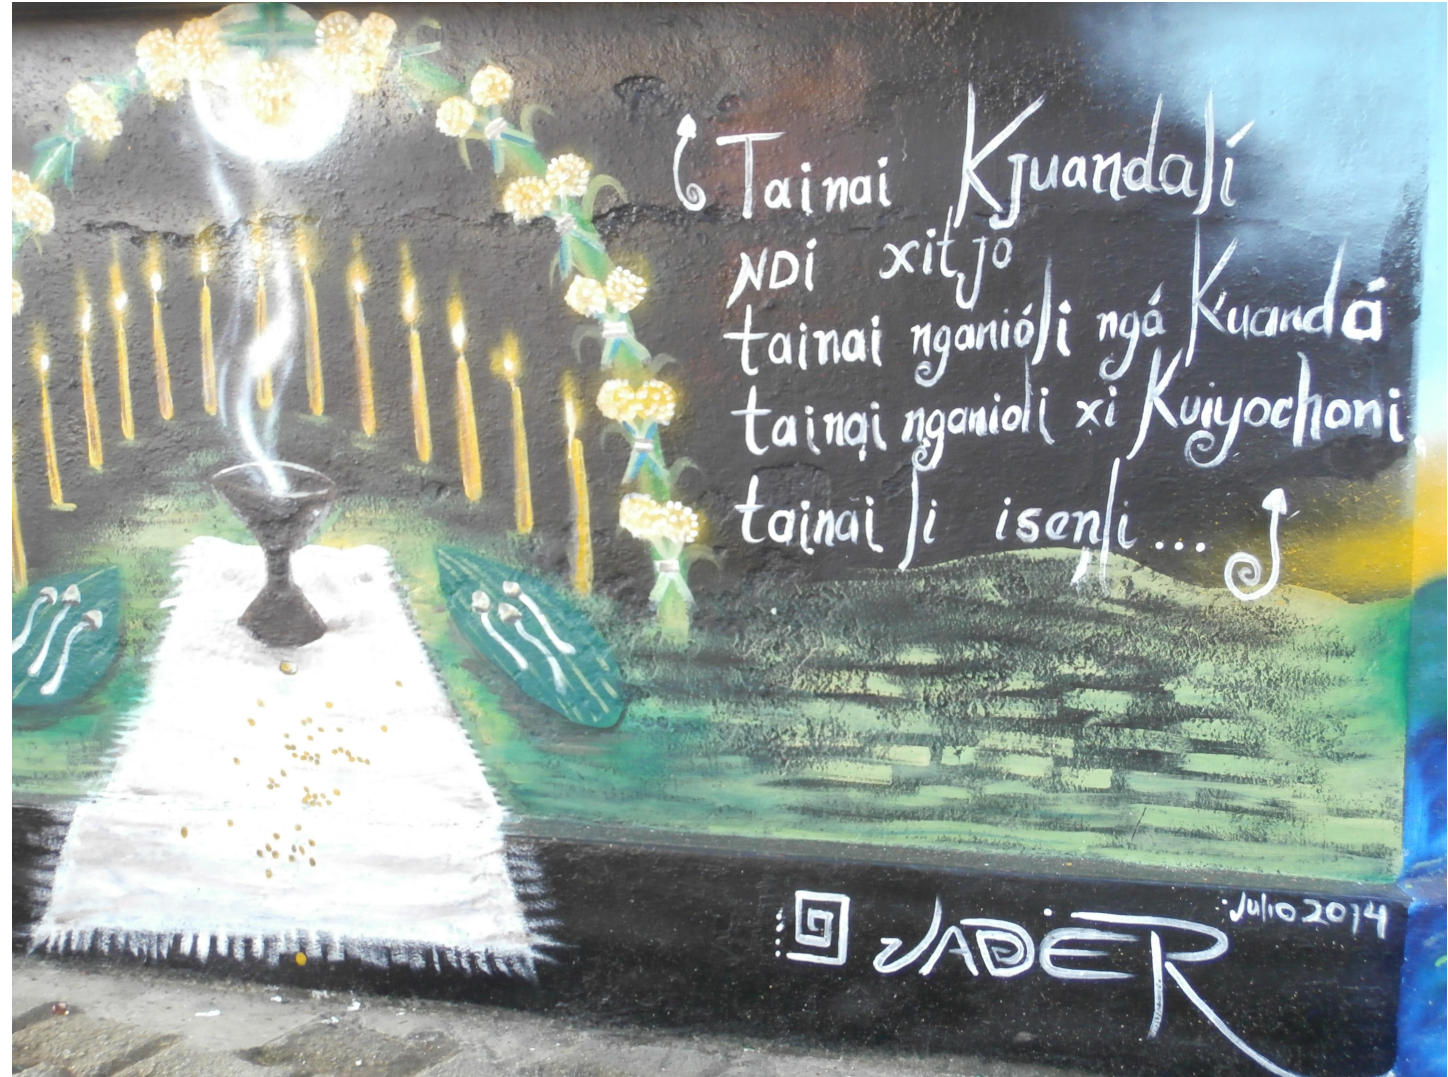 Tainai Kjuandalí
NDÍ xitjo
tainai nganióli ngá Kuandá
tainai nganioli xi Kuiyochoni,
tainai li isenli...
JADER
Julio 2014